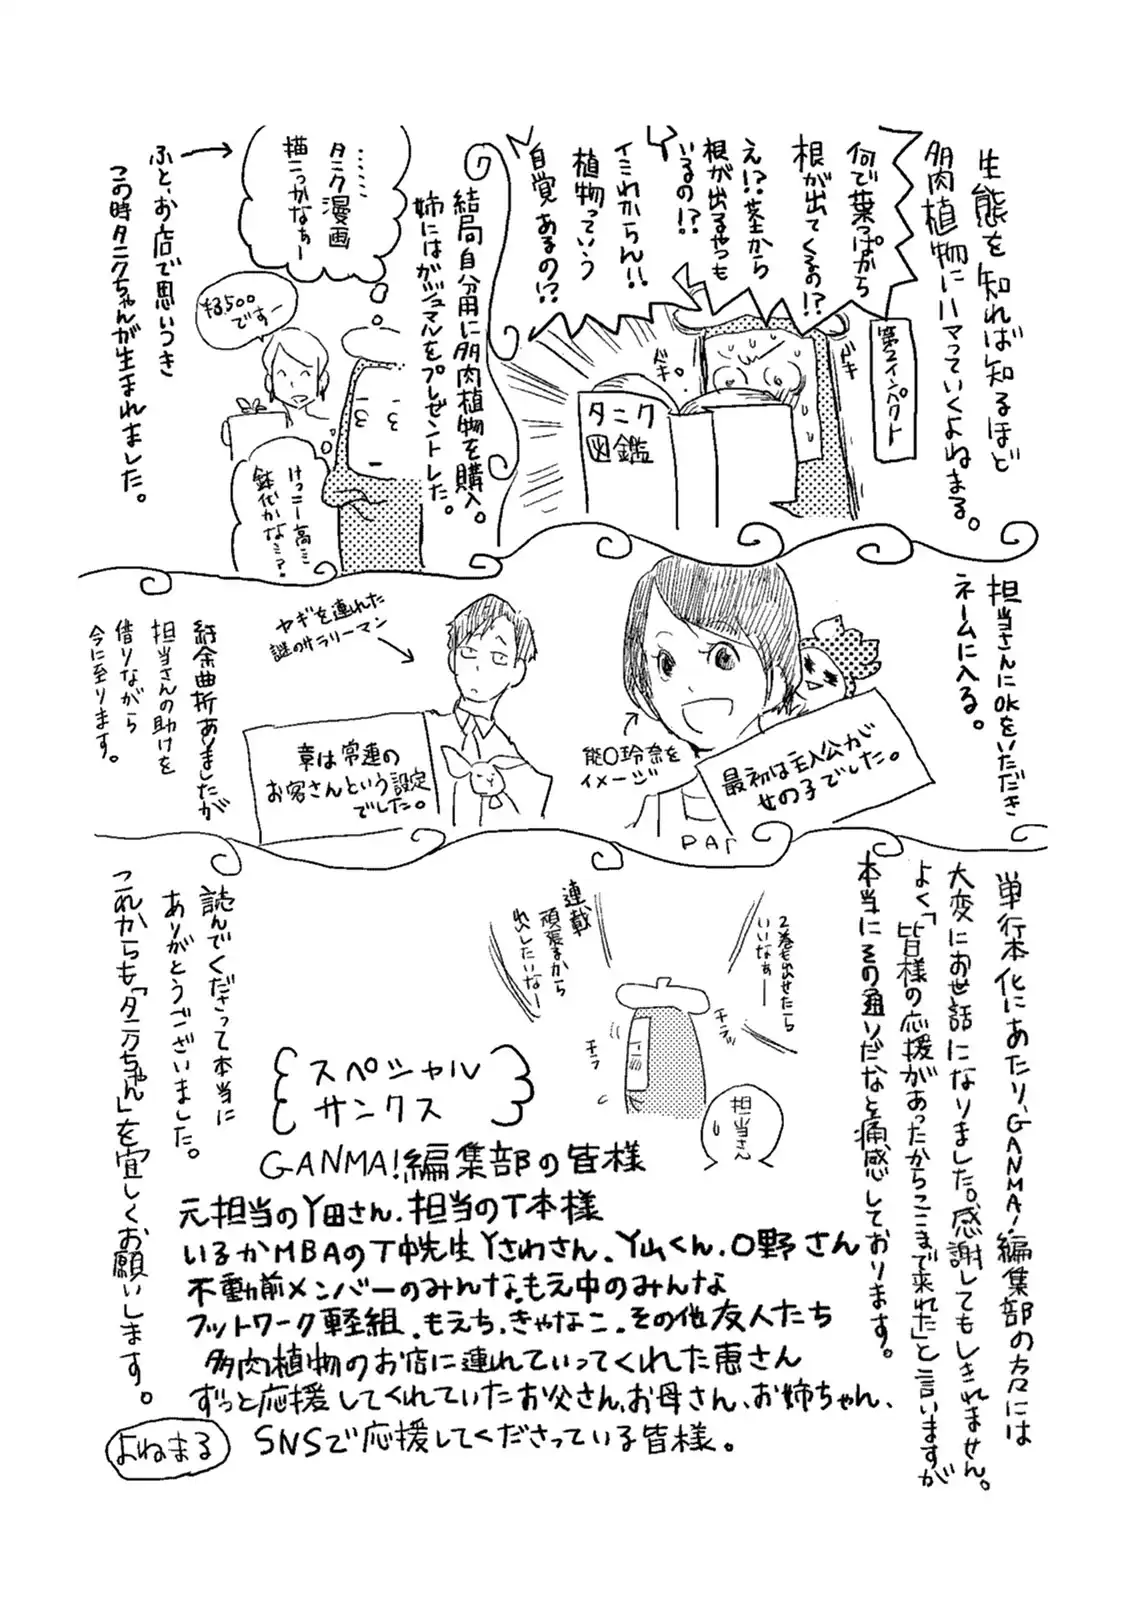 生態を知れば知るほど
多肉植物にハマっていくよねまる。
何で葉っぱから
根が出てくるの!?
え!?茎から
根が出るやつも
いるの!?
イミわからん!!
植物っていう
自覚あるの!?
第2インパクト
ドキ
ドキ。
タニク
図鑑
結局自分用に多肉植物を購入。
姉にはガジュマルをプレゼントした。
……
タニク漫画
描こっかなぁー
¥3,500
ですー
けっこー高…
鉢代かな…?
ふと、お店で思いつき
この時タニクちゃんが生まれました。
担当さんにOKをいただき
ネームに入る。
最初は主人公が
女の子でした。
能□玲奈を
イメージ
ヤギを連れた
謎のサラリーマン
章は常連の
お客さんという設定
でした。
紆余曲折ありましたが
担当さんの助けを
借りながら
今に至ります。
単行本化にあたり、GANMA!編集部の方々には
大変にお世話になりました。感謝してもしきれません。
よく「皆様の応援があったからここまで来れた」と言いますが
本当にその通りだなと痛感しております。
2巻も出せたら
いいなぁー
連載
頑張るから
出したいなー
チラッ
チラ
担当さん
読んでくださって本当に
ありがとうございました。
これからも「タニクちゃん」を宜しくお願いします。
スペシャル
サンクス
GANMA!編集部の皆様
元担当のY田さん、担当のT本様
いるかMBAのT中先生Yさわさん、Y山くん、O野さん
不動前メンバーのみんな、もえ中のみんな
フットワーク軽組、もえち、きゃなこ、その他友人たち
多肉植物のお店に連れていってくれた恵さん
ずっと応援してくれていたお父さん、お母さん、お姉ちゃん、
SNSで応援してくださっている皆様。
よねまる